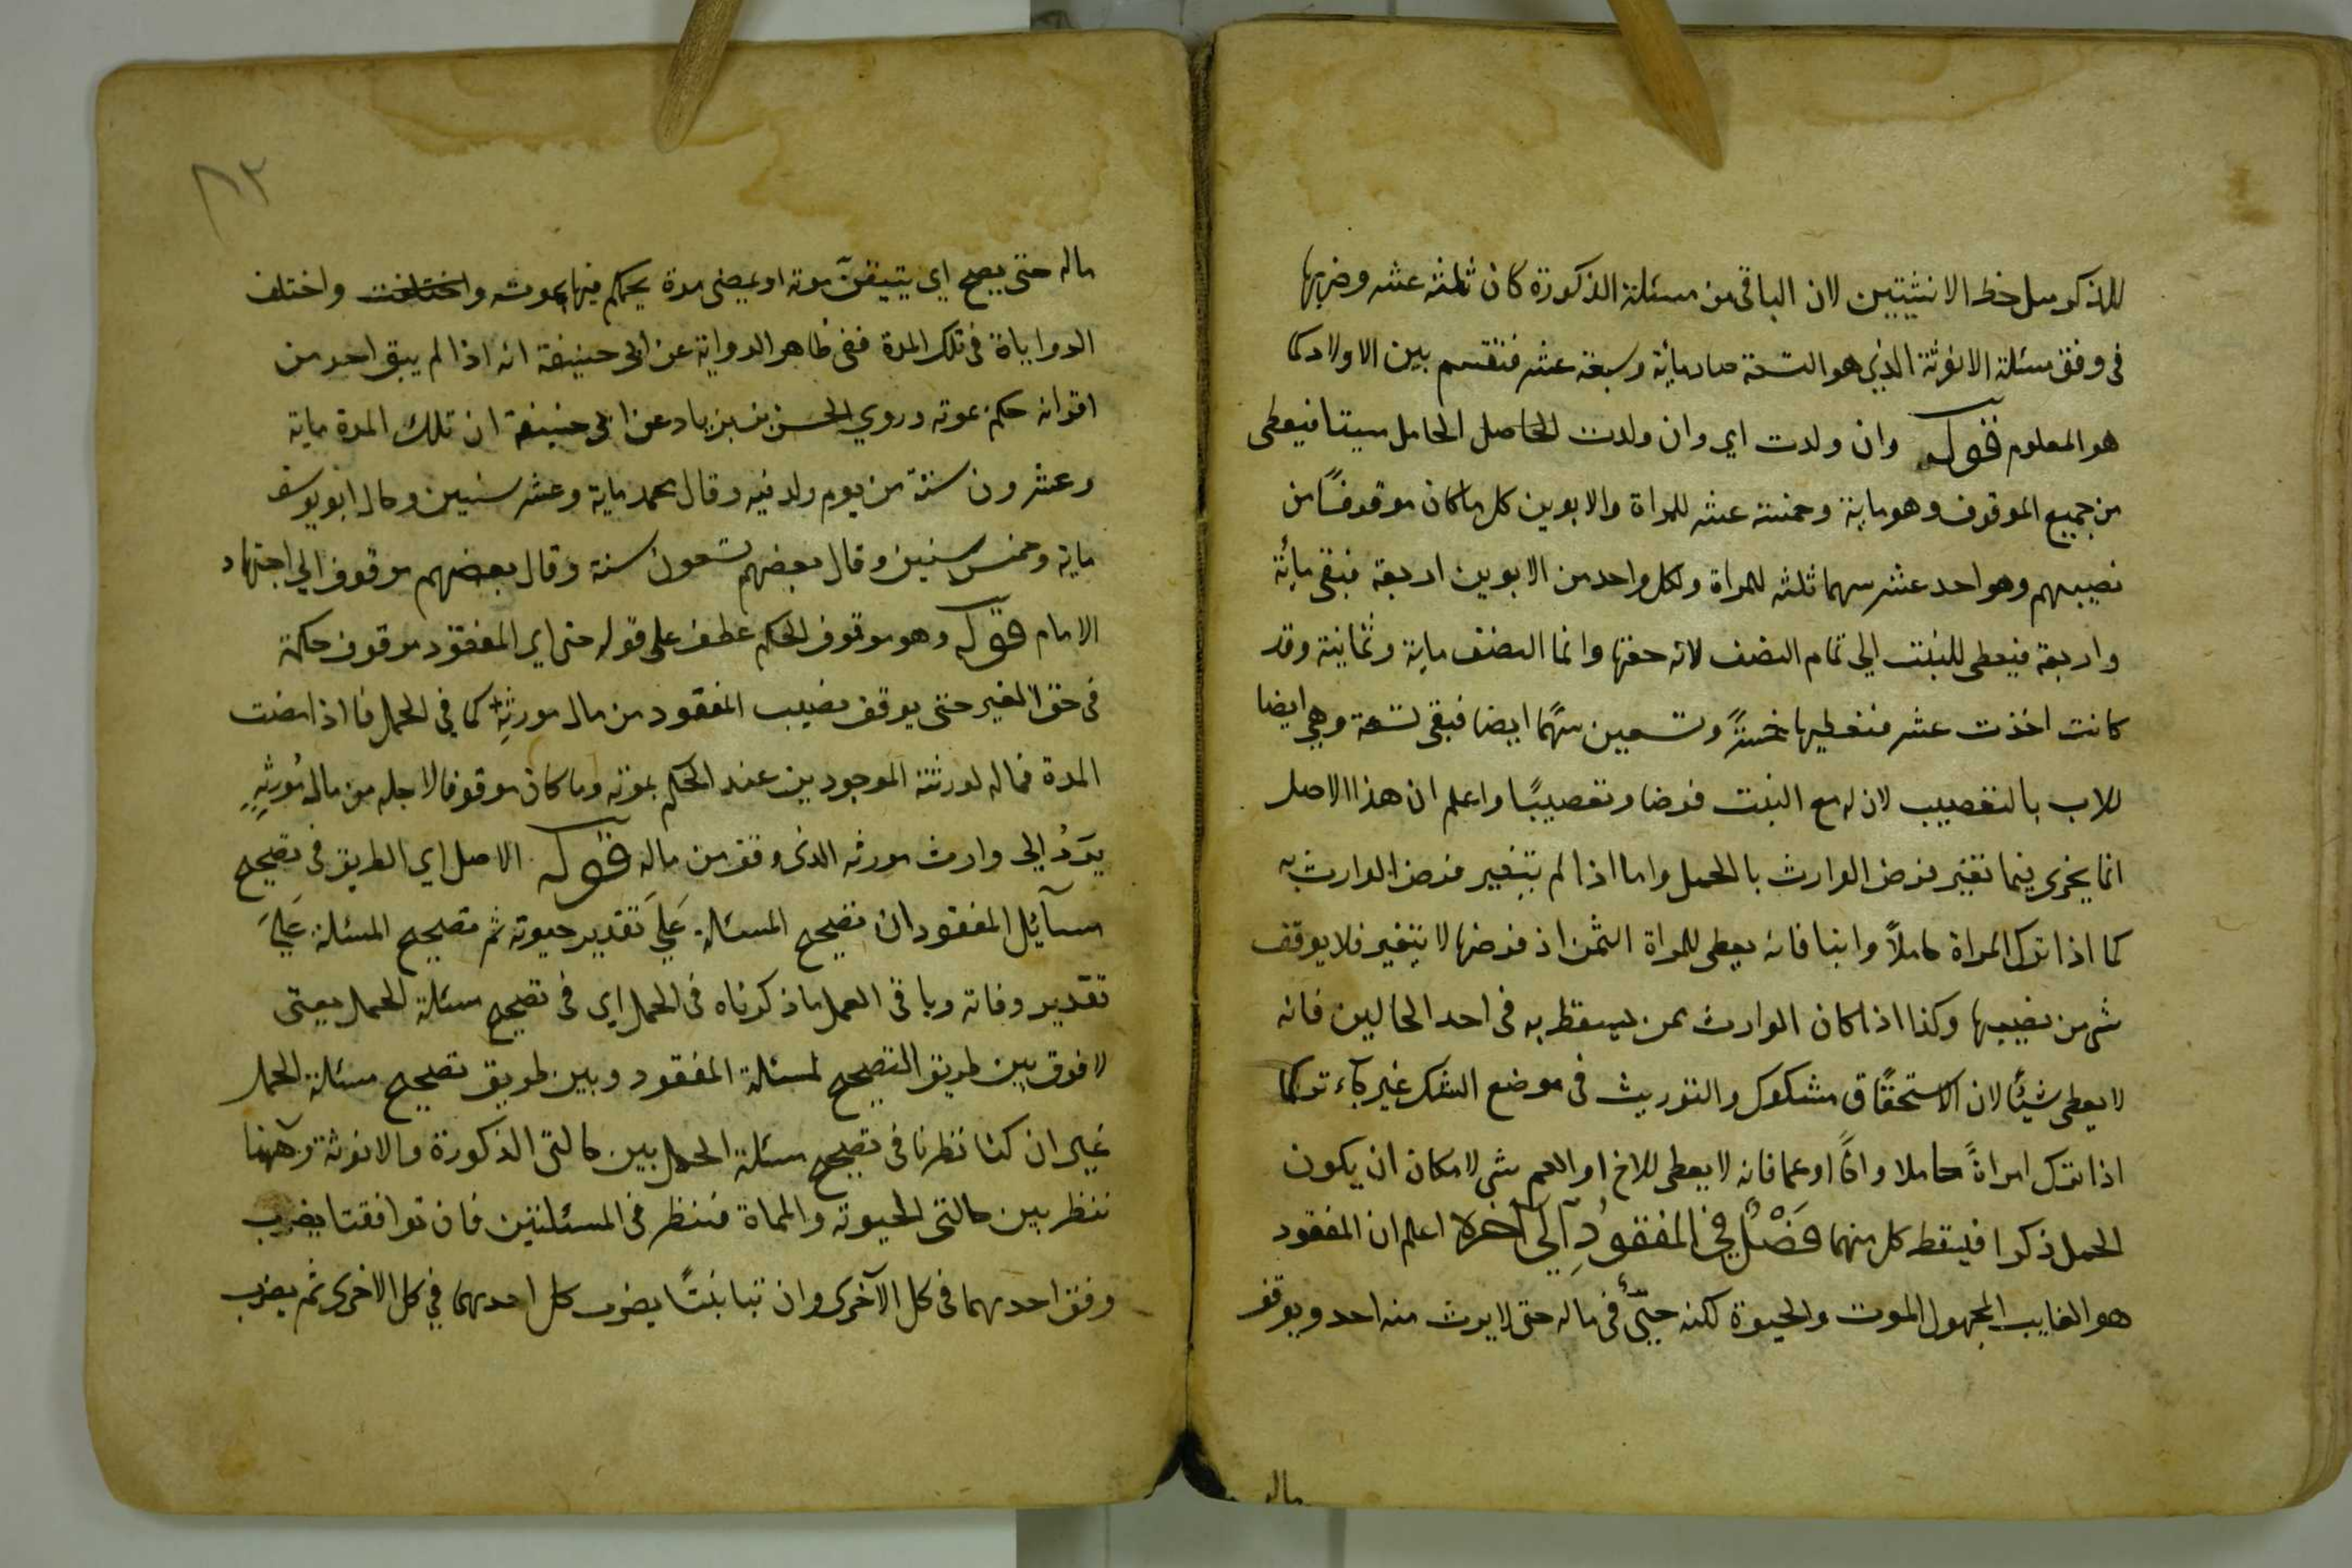 للذكر مثل حظ الانثيين لان الباقى من مسئلة الذكورة كان ثلثه عشر وضربها
فى وفق مسئلة الانوثة الذي هو التسعة صار مائة وسبعة عشر فتقسم بين الاولاد كما
هو المعلوم قوله وان ولدت اي وان ولدت الحاصل الحامل ميتا فيعطى
من جميع الموقوف وهو ماية وخمسة عشر للمراة والابوين كل ما كان موقوفًا من
نصيبهم وهو احد عشر سهما ثلثه للمراة ولكل واحد من الابوين اربعة فبقى مائة
واربعة فيعطى للبنت الي تمام النصف لانه حقها وانما النصف ماية وثمانية وقد
كانت اخذت عشر فنعطيها خمسةً وتسعين سهمًا ايضا فبقى تسعة وهي ايضا
للاب بالتعصيب لان له مع البنت فرضا وتعصيبًا واعلم ان هذا الاصل
انما يجرى فيما تغير فرض الوارث بالحمل واما اذا لم يتغير فرض الوارث به
كما اذا ترك المراة حاملاً وابنا فانه يعطى للمراة الثمن اذ فرضها لا يتغير فلا يوقف
شى من نصيبها وكذا اذا كان الوارث ممن يسقط به فى احد الحالين فانه
لا يعطى شيئًا لان الاستحقاق مشكوك والتوريث فى موضع الشك غير جاء تركما
اذا ترك امراةً حاملا واخًا او عما فانه لا يعطى للاخ او العم شى لامكان ان يكون
الحمل ذكرا فيسقط كل منهما فَصْلٌ في المفقودِ الي آخره اعلم ان المفقود
هو الغايب المجهول الموت والحيوة لكنه حيّ فى ماله حتى لا يرث منه احد ويوقف
ماله
٨٣
ماله حتى يصح اي يتيقن موته او يمضى مدة يحكم فيها بموته واختلفت واختلف
الروايات فى تلك المدة ففى ظاهر الرواية عن ابى حنيفة انه اذا لم يبق احد من
اقرانه حكم بموته وروي الحسن بن زياد عن ابى حنيفة ان تلك المدة ماية
وعشرون سنة من يوم ولد فيه وقال محمد ماية وعشر سنين وقال ابو يوسف
ماية وخمس سنين وقال بعضهم تسعون سنة وقال بعضهم موقوف الي اجتهاد
الامام قوله وهو موقوف الحكم عطف على قوله حتى اي المفقود موقوف حكمه
فى حق الغير حتى يوقف نصيب المفقود من مال مورثِه كما في الحمل فاذا مضت
المدة فماله لورثته الموجودين عند الحكم بموته وما كان موقوفا لاجله من مال مُورثِهِ
يرَدُ الى وارث مورثه الذى وقف من ماله قوله الاصل اي الطريق فى تصحيح
مسآئل المفقود ان تصحيح المسئلة عَليَ تقدير حيوته ثم تصحيح المسئلة عَليَ
تقدير وفاته وباقى العمل ما ذكرناه فى الحمل اى فى تصحيح مسئلة الحمل يعنى
لا فرق بين طريق التصحيح لمسئلة المفقود وبين طريق تصحيح مسئلة الحمل
غير ان كنا نظرنا فى تصحيح مسئلة الحمل بين حالتى الذكورة والانوثة وههنا
ننظر بين حالتى الحيوته والمماة فننظر فى المسئلتين فان توافقتا يضرب
وفق احديهما فى كل الآخرى وان تباينتًا يضرب كل احديهما في كل الاخرى ثم يضرب